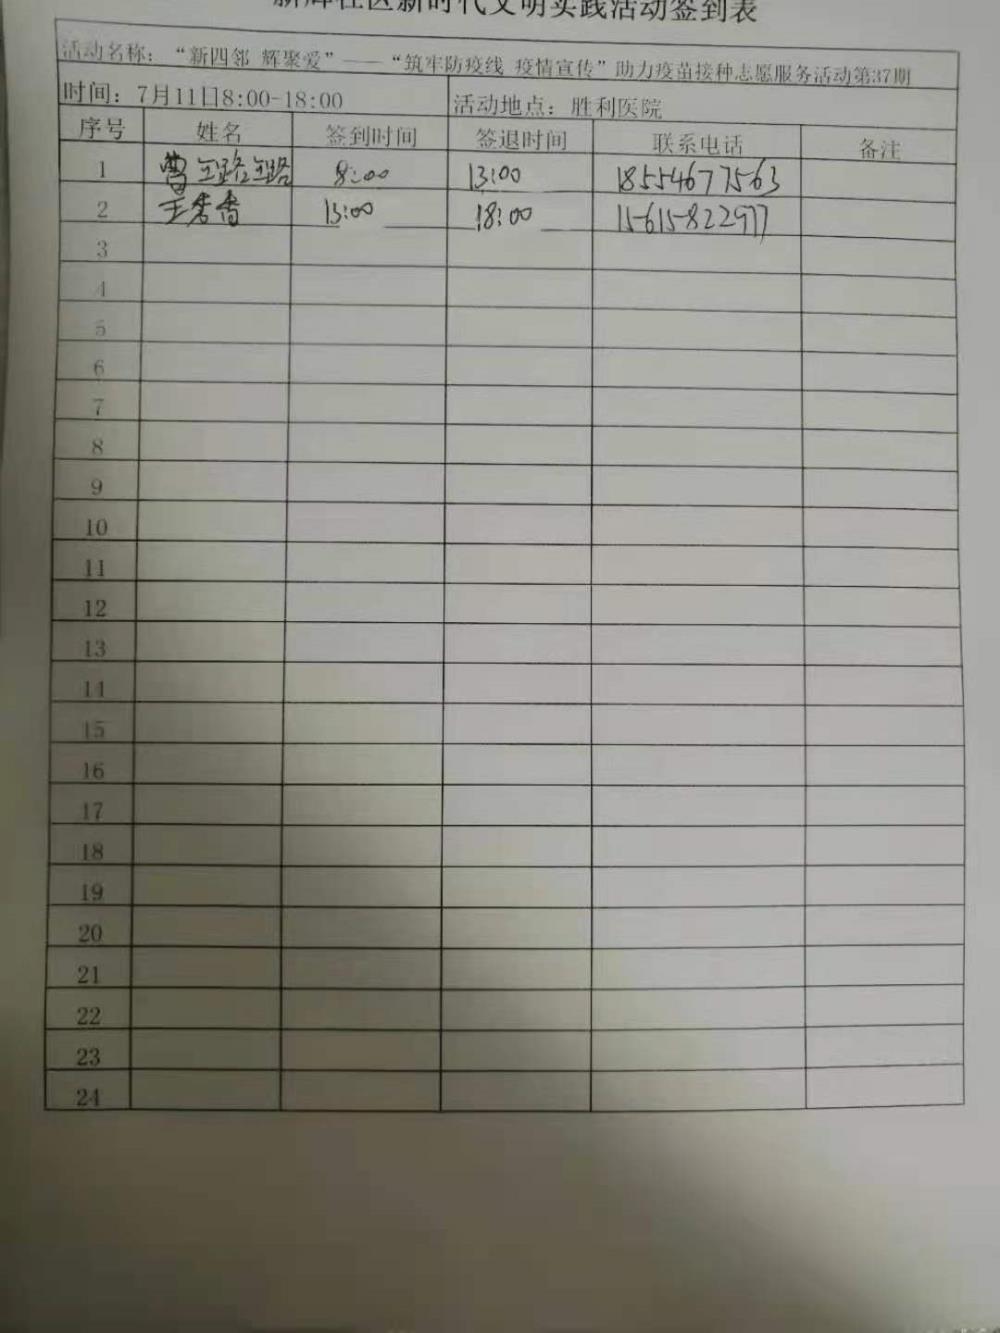 新辉社区新时代文明实践活动签到表
活动名称：“新四邻 辉聚爱”——“筑牢防疫线 疫情宣传”助力疫苗接种志愿服务活动第37期
时间：7月11日8:00-18:00 活动地点：胜利医院
序号 姓名 签到时间 签退时间 联系电话 备注
1 曹璐璐 8:00 13:00 18554677563
2 王秀香 13:00 18:00 15615822977
3
4
5
6
7
8
9
10
11
12
13
14
15
16
17
18
19
20
21
22
23
24